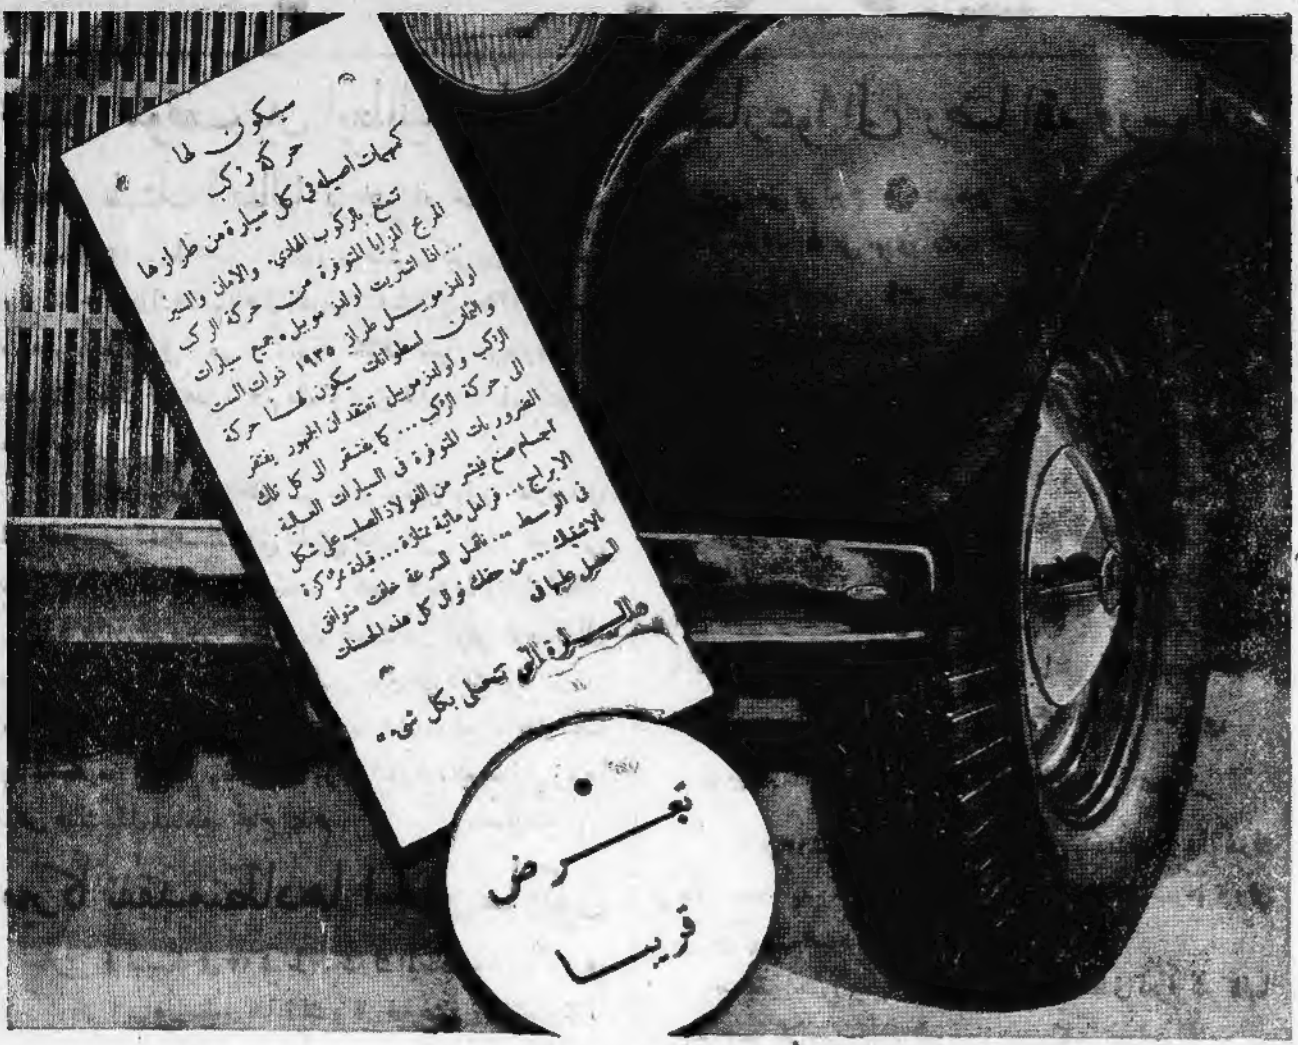 سيكون لها
حركة ركب
كمهمات اصيله في كل سيارة من طرازها
تمتع بالركوب الهادىء والامان والسير
المريح المزايا المتوفرة من حركة الركب
... اذا اشتريت اولدزموبيل. جميع سيارات
اولدزموبيل طراز ١٩٣٥ ذوات الست
والثمان اسطوانات سيكون لهـا حركة
الركب واولدزموبيل تعتقد ان الجمهور يفتقر
الى حركة الركب ... كما يفتقر الى كل تلك
الضروريات المتوفرة في السيارات العالية.
اجسام صنع فيشر من الفولاذ الصلب على شكل
الابراج ... فرامل مائية ممتازة ... قيادة مركزة
في الوسط ... ناقل السرعة خافت متوافق
الاشتباك ... من حقك نوال كل هذه الحسنات
السيارة التي تتحلى بكل شيء
تعـــرض
قريبـــا